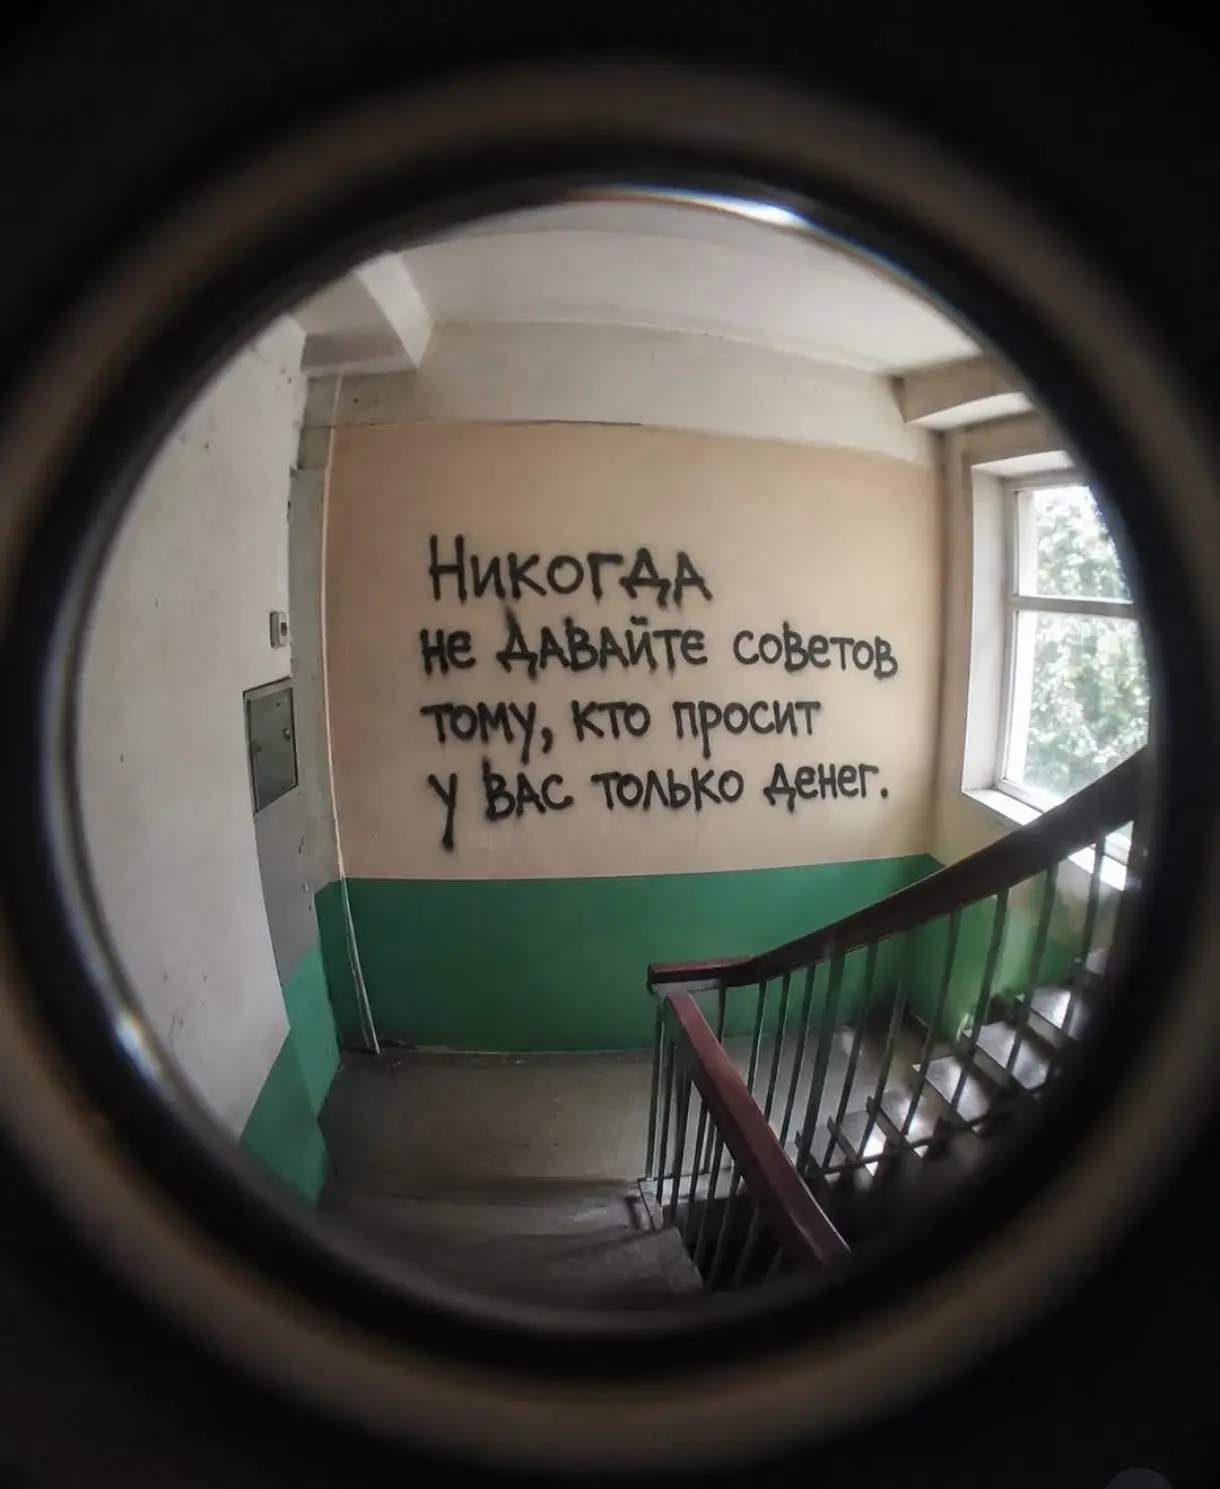 Никогда
не давайте советов
тому, кто просит
у вас только денег.